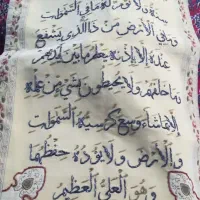 سنة ولا نوم له ما في السموات
وما في الأرض من ذا الذي يشفع
عنده إلا بإذنه يعلم ما بين أيديهم
وما خلفهم ولا يحيطون بشيء من علمه
إلا بما شاء وسع كرسيه السموات
والأرض ولا يؤده حفظهما
وهو العلي العظيم